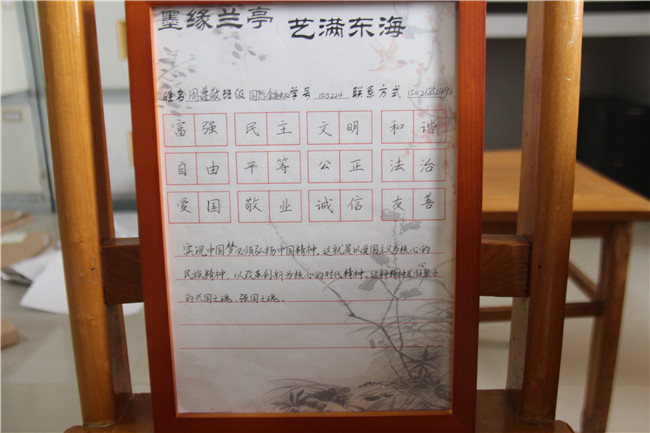 墨缘兰亭 艺满东海
姓名 周 班级 国际金融 学号 联系方式
富强 民主 文明 和谐
自由 平等 公正 法治
爱国 敬业 诚信 友善
实现中国梦必须弘扬中国精神。这就是以爱国主义为核心的
民族精神，以改革创新为核心的时代精神。这种精神是凝聚力
的兴国之魂、强国之魂。